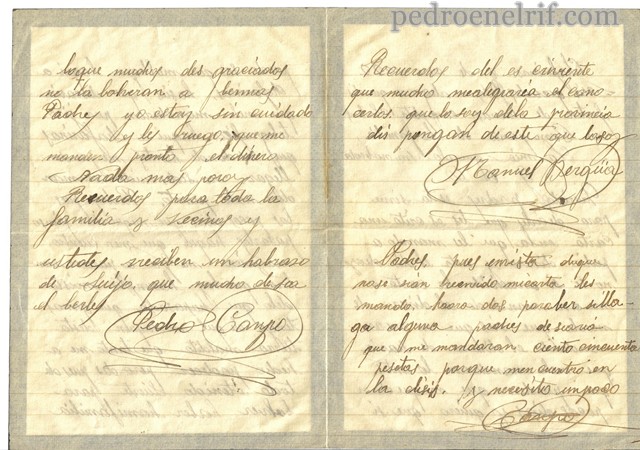 pedroenelrif.com
loque muchos des graciados
no la bolveran a bernos
Padres yo estoy sin cuidado
y les ruego, que me
manden pronto el dinero
nada mas por oy
Recuerdos para toda la
familia y vecinos y
ustedes reciben un habraso
de suijo. que mucho desea
el berles
Pedro Campo
Recuerdos del es criviente
que mucho mealegraria el cono-
cerlos. que lo soy dela provincia
dis pongan de este que lo soy
Manuel Bergua
Padres. pues envista de que
nose sian recivido micarta les
mando. hotro dos para ber silla-
ga alguna padres desiaria
que me mandaran ciento cincuenta
pesetas porque men cuentro en
la disis. y necesito un poco
Campo